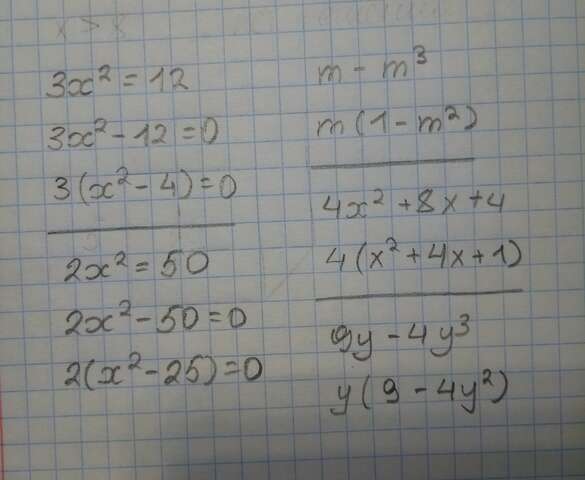 3x² = 12
3x² - 12 = 0
3(x² - 4) = 0
2x² = 50
2x² - 50 = 0
2(x² - 25) = 0
m - m³
m(1 - m²)
4x² + 8x + 4
4(x² + 4x + 1)
9y - 4y³
y(9 - 4y²)